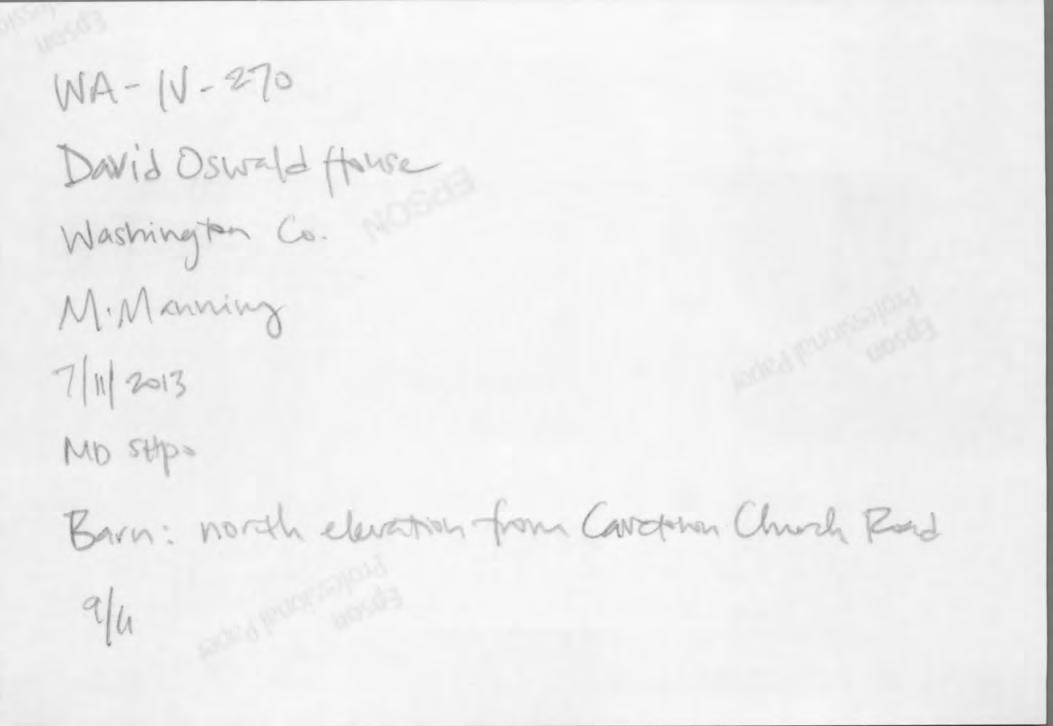 WA-IV-270
David Oswald House
Washington Co.
M. Manning
7/11/2013
MD SHPO
Barn: north elevation from Church Road
Epson
EPSON
Professional Paper
Epson
Professional Paper
Epson